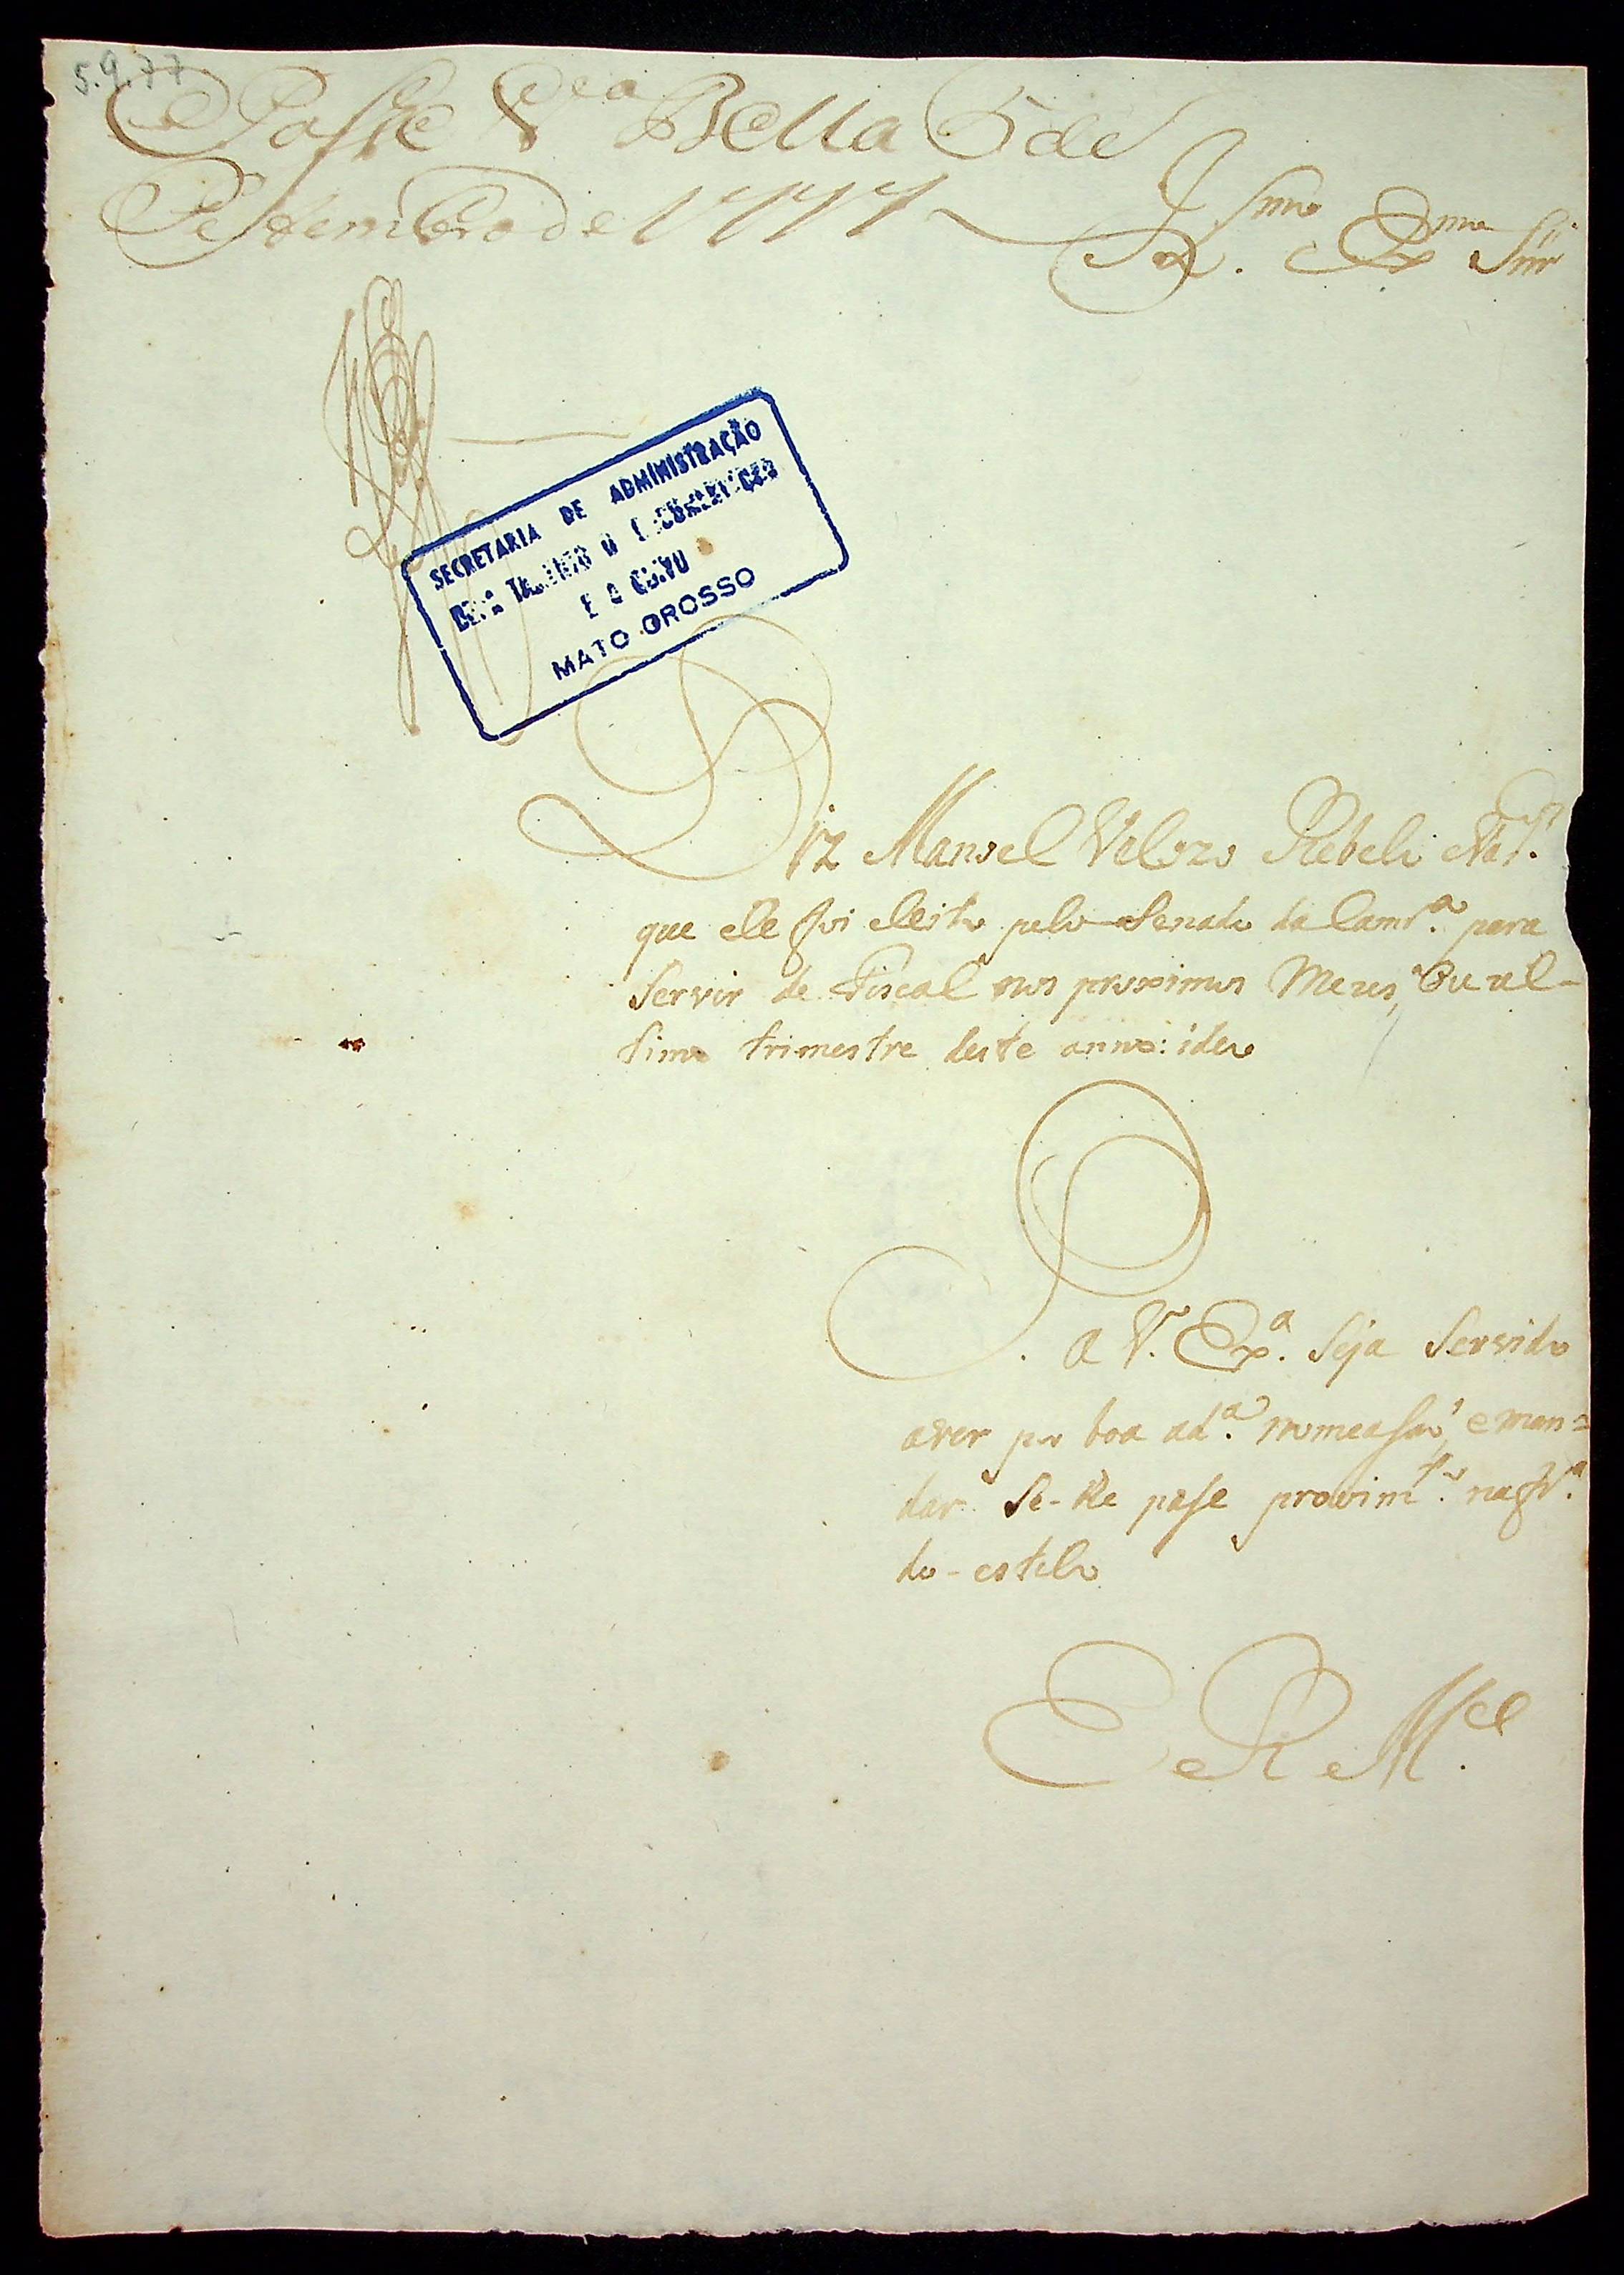 5.9.77
Passe V.ª Bella 5 de
Settembro de 1777
Ill.mo Ex.mo Snr
SECRETARIA DE ADMINISTRAÇÃO
E
MATO GROSSO
Diz Manoel Velozo Rebelo
que ele foi eleito pelo Senado da Camr.ª para
Servir de Fiscal nos proximos Mezes, Ou ul-
timo trimestre deste anno:
P. a V. Ex.ª Seja Servido
aver por boa ad.ª nomeasaõ, e man=
dar Se-lhe pase provim.to na fr.ª
do-estelo
E R M.ce